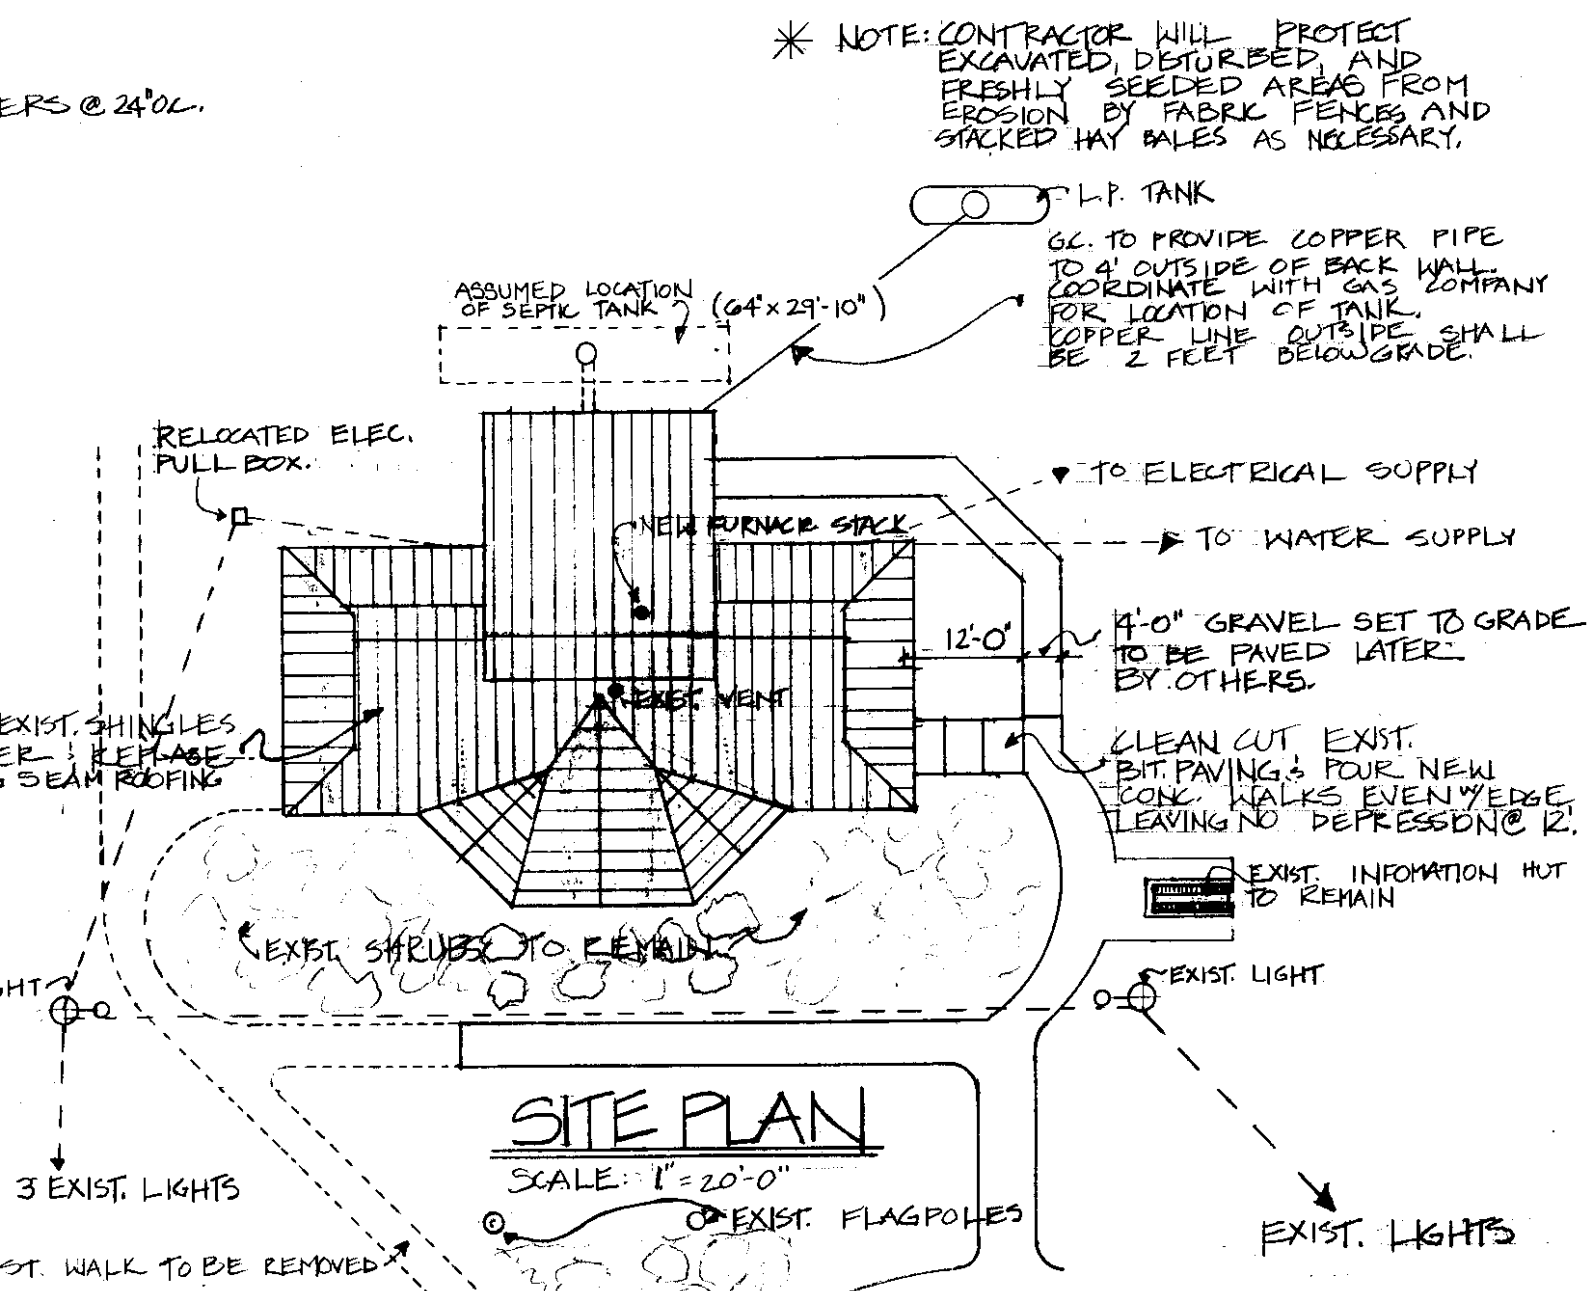 ✳ NOTE: CONTRACTOR WILL PROTECT
EXCAVATED, DISTURBED, AND
FRESHLY SEEDED AREAS FROM
EROSION BY FABRIC FENCES AND
STACKED HAY BALES AS NECESSARY.
ERS @ 24" O.C.
L.P. TANK
G.C. TO PROVIDE COPPER PIPE
TO 4' OUTSIDE OF BACK WALL.
COORDINATE WITH GAS COMPANY
FOR LOCATION OF TANK.
COPPER LINE OUTSIDE SHALL
BE 2 FEET BELOW GRADE.
ASSUMED LOCATION
OF SEPTIC TANK
(64" x 29'-10")
RELOCATED ELEC.
PULL BOX.
TO ELECTRICAL SUPPLY
NEW FURNACE STACK
TO WATER SUPPLY
12'-0"
4'-0" GRAVEL SET TO GRADE
TO BE PAVED LATER
BY OTHERS.
EXIST. VENT
EXIST. SHINGLES
ER & REPLACE
G SEAM ROOFING
CLEAN CUT EXIST.
BIT. PAVING & POUR NEW
CONC. WALKS EVEN W/ EDGE
LEAVING NO DEPRESSION @ 12'.
EXIST. INFOMATION HUT
TO REMAIN
EXIST. SHRUBS TO REMAIN
GHT
EXIST. LIGHT
SITE PLAN
SCALE: 1" = 20'-0"
3 EXIST. LIGHTS
EXIST. FLAGPOLES
EXIST. LIGHTS
ST. WALK TO BE REMOVED